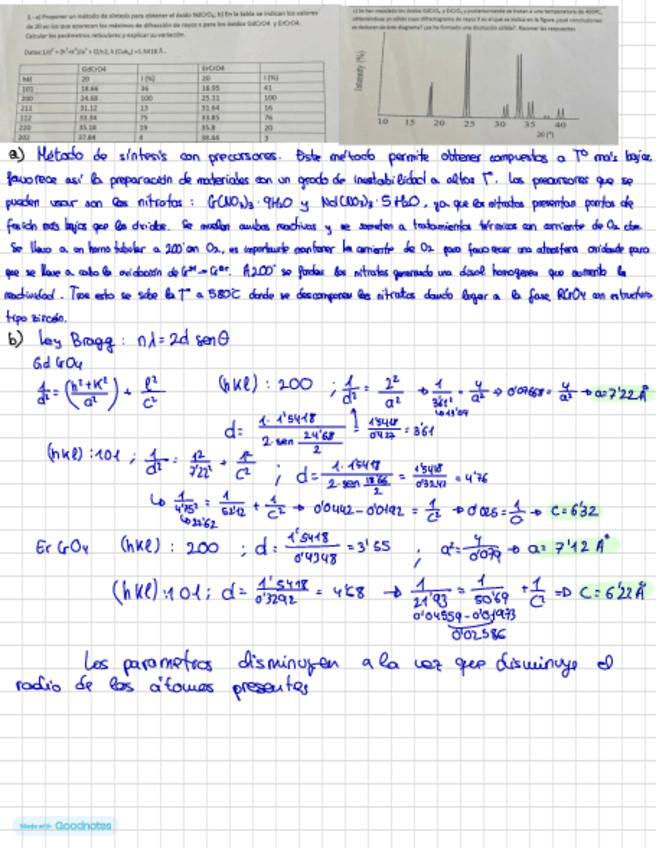 3.- a) Proponer un método de síntesis para obtener el óxido NdCrO4; b) En la tabla se indican los valores
de 2θ en los que aparecen los máximos de difracción de rayos x para los óxidos GdCrO4 y ErCrO4.
Calcular los parámetros reticulares y explicar su variación.
Datos: 1/d² = (h²+k²)/a² + l2/c2, λ (CuKα) =1.5418 Å.
GdCrO4 ErCrO4
hkl 2θ I (%) 2θ I (%)
101 18.66 36 18.95 41
200 24.68 100 25.11 100
211 31.12 13 31.64 16
112 33.34 75 33.85 76
220 35.18 19 35.8 20
202 37.84 4 38.44 3
Intensity (%)
10 15 20 25 30 35 40
2θ (°)
a) Método de síntesis con precursores. Este método permite obtener compuestos a Tº más bajas
favorece así la preparación de materiales con un grado de inestabilidad a altas Tº. Los precursores que se
pueden usar son los nitratos : Cr(NO3)3 · 9H2O y Nd(NO3)3 · 5H2O, ya que los nitratos presentan puntos de
fusión más bajos que los óxidos. Se mezclan ambos reactivos y se someten a tratamientos térmicos con corriente de O2
Se lleva a un horno tubular a 200 en O2, es importante mantener la corriente de O2 para favorecer una atmosfera oxidante para
que se lleve a cabo la oxidación de A 200º se funden los nitratos generando una disol homogenea que aumenta la
reactividad. Tras esto se sube la Tº a 580ºC donde se descomponen los nitratos dando lugar a la fase RCrO4 con estructura
tipo zircón.
b) Ley Bragg : nλ = 2d senθ
Gd CrO4
1/d² = (h²+K²/a²) + l²/c² (hkl) : 200 ; 1/d² = 2²/a² → 1/3'61² = 4/a² → 0'07668 = 4/a² → a= 7'22 Å
↳ 13'04
d = 1 · 1'5418 / 2 · sen 24'68/2 = 1'5418/0'427 = 3'61
(hkl) : 101 ; 1/d² = 1²/7'22² + 1²/c² ; d = 1 · 1'5418 / 2 · sen 18'66/2 = 1'5418/0'3242 = 4'76
↳ 1/4'75² = 1/52'12 + 1/c² → 0'0442 - 0'0192 = 1/c² → 0'025 = 1/c → c = 6'32
↳ 22'62
Er CrO4 (hkl) : 200 ; d = 1'5418/0'4348 = 3'55 ; a² = 4/0'079 → a = 7'12 Å
(hkl) : 101 ; d = 1'5418/0'3292 = 4'68 → 1/21'93 = 1/50'69 + 1/c² => c = 6'22 Å
0'04559 - 0'01973
0'02586
Los parametros disminuyen a la vez que disminuye el
radio de los átomos presentes
Made with Goodnotes